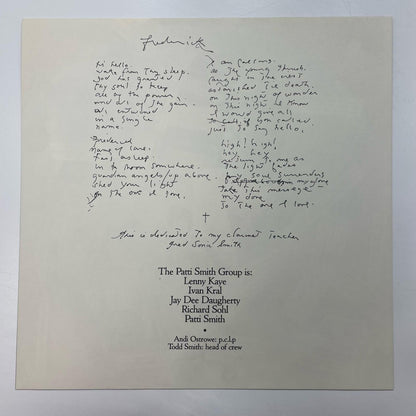 Frederick
hi hello.
wake from thy sleep.
god has granted
thy soul to keep
all of the power
and all of the gain.
all entwined
in a single
name.
Frederick
name of care.
fast asleep
in a room somewhere.
guardian angels up above
shed your light
on the one I love.
the young
caught in the
on this night of wonder
on this night he know
I would give all
you called.
just to say hello.
high! high!
hey hey
me as
the light fades
my soul surrenders
take this message
my dove
to the one I love.
this is dedicated to my clarinet teacher
Fred Sonic Smith
The Patti Smith Group is:
Lenny Kaye
Ivan Kral
Jay Dee Daugherty
Richard Sohl
Patti Smith
Andi Ostrowe: p.c.l.p
Todd Smith: head of crew